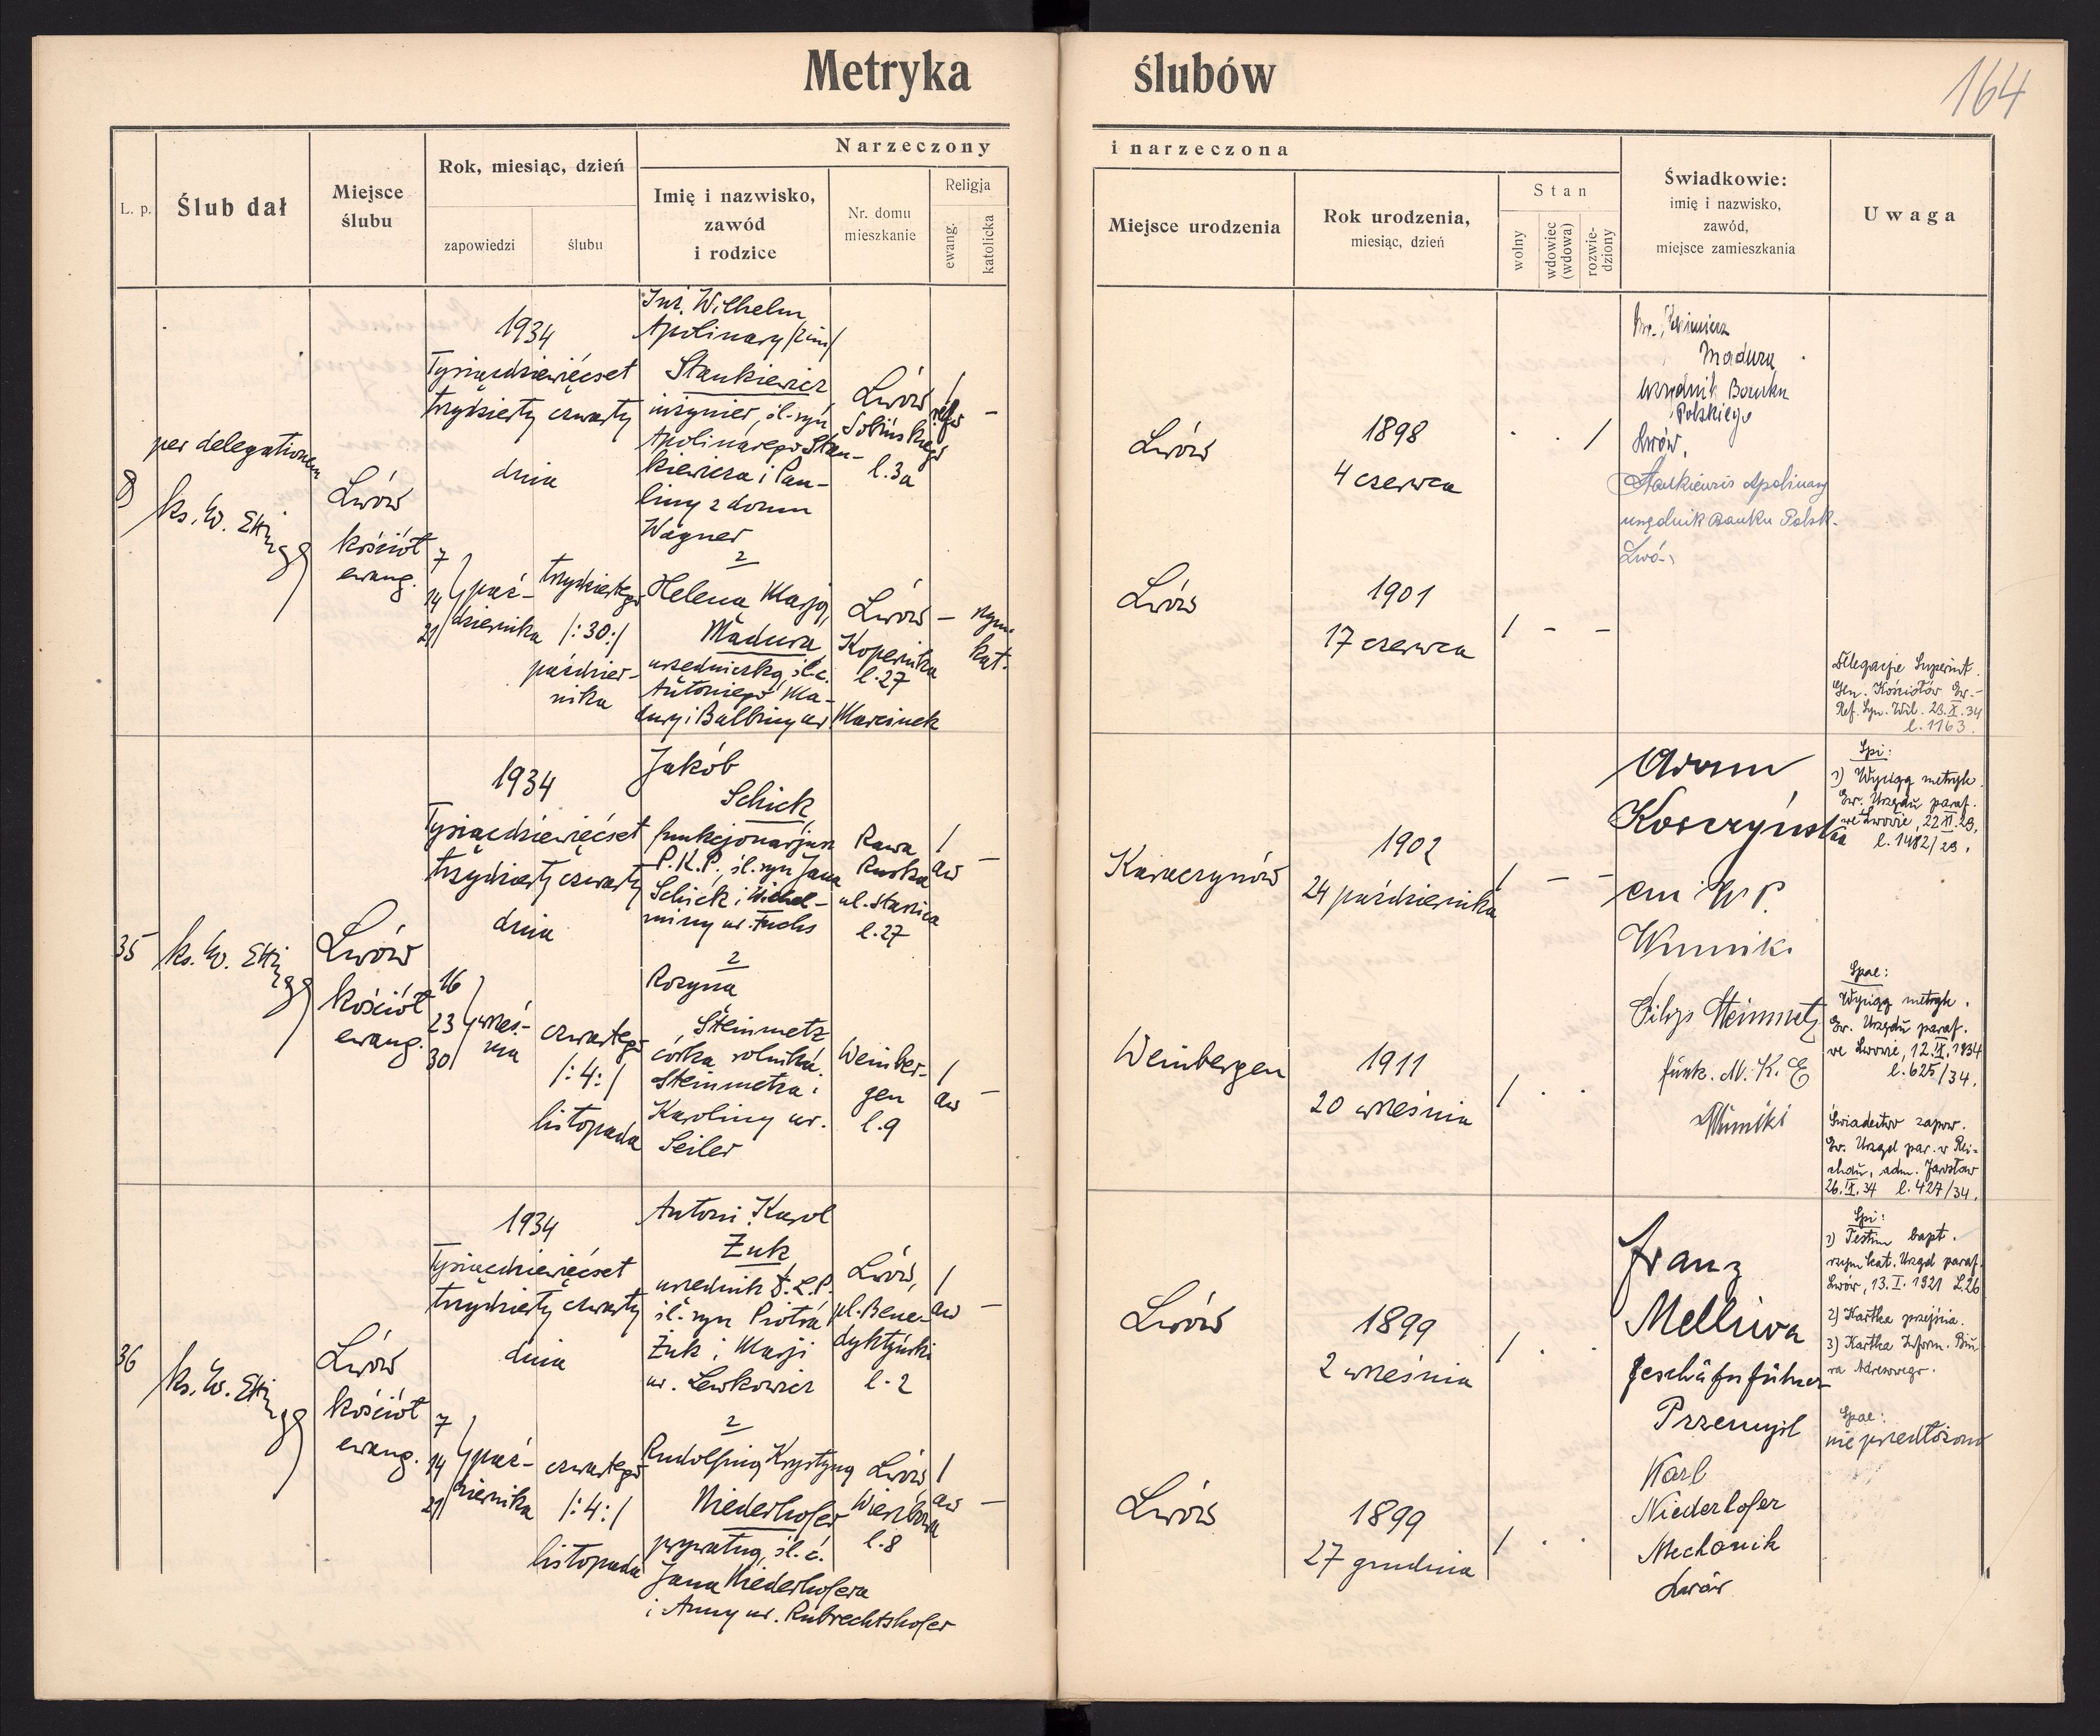 Metryka ślubów
164
Narzeczony i narzeczona
L. p.
Ślub dał
Miejsce
ślubu
Rok, miesiąc, dzień
zapowiedzi
ślubu
Imię i nazwisko,
zawód
i rodzice
Nr. domu
mieszkanie
Religja
ewang.
katolicka
Miejsce urodzenia
Rok urodzenia,
miesiąc, dzień
Stan
wolny
wdowiec
(wdowa)
rozwie-
dziony
Świadkowie:
imię i nazwisko,
zawód,
miejsce zamieszkania
Uwaga
per delegationem
ks. W.
Lwów
kościół
ewang.
1934
Tysiącdziewięćset
trzydziesty czwarty
dnia
7
14
21
paź-
dziernika
trzydziestego
/:30:/
paździer-
nika
Inż. Wilhelm
Apolinary /2im/
Stankiewicz
inżynier, śl. syn
Apolinarego Stan-
kiewicza i Pau-
liny z domu
Wagner
Lwów
l. 3a
/
ref.
–
Lwów
1898
4 czerwca
/
2
Helena Marja
Madura
urzedniczka, śl. c.
Antoniego Ma-
dury i Balbiny ur. Marcinek
Lwów
Kopernika
l. 27
–
rzym.
kat.
Lwów
1901
17 czerwca
/ – –
Madura
Banku
Polskiego
Lwów.
Stankiewicz Apolinary
urzędnik Banku Polsk.
Delegacje Superint.
Gen. Kościołów Ew.-
Ref. Syn. Wil. 23.X.34
l. 1163.
35
ks. W.
Lwów
kościół
ewang.
1934
Tysiącdziewięćset
trzydziesty czwarty
dnia
16
23
30
wrześ-
nia
czwartego
/:4:/
listopada
Jakób
Schick
funkcjonarjusz
P.K.P., śl. syn Jana
Schick i Wilhel-
miny ur. Fuchs
Rawa
Ruska
l. 27
/
aw
–
Karaczynów
1902
24 października
/ – –
2
Rozyna
Steinmetz
córka rolnika
Steinmetza i
Karoliny ur.
Seiler
Weinber-
gen
l. 9
/
aw
–
Weinbergen
1911
20 września
/
Adam
em W.P.
Winniki
Filip Steinmetz
funk. M.K.E
Winniki
Spi:
1) Wyciąg metryk.
Ew. Urzędu paraf.
we Lwowie, 22.
l. 1482/23.
Spae:
Wyciąg metryk.
Ew. Urzędu paraf.
we Lwowie, 12.IX.1934
l. 625/34.
Świadectwo zapow.
Ew. Urząd par. w Rei-
chau, adm. Jarosław
26.IX.34 l. 427/34.
36
ks. W.
Lwów
kościół
ewang.
1934
Tysiącdziewięćset
trzydziesty czwarty
dnia
7
14
21
paź-
ziernika
czwartego
/:4:/
listopada
Antoni Karol
Żuk
urzednik
śl. syn Piotra
Żuk i Marji
ur. Lewkowicz
Lwów,
pl. Bene-
dyktyński
l. 2
/
aw
–
Lwów
1899
2 września
/
2
Rudolfina Krystyna
Niederhofer
prywatna, śl. c.
Jana Niederhofera
i Anny ur. Rubrechtshofer
Lwów
Wierzbowa
l. 8
/
aw
–
Lwów
1899
27 grudnia
/
Franz
Melliwa
Geschäftsführer
Przemyśl
Karl
Niederhofer
Mechanik
Lwów
Spi:
1) Testim bapt.
rzym kat. Urząd paraf.
Lwów, 13.I.1921 L.26
2) Kartka przejścia.
3) Kartka Inform. Biu-
ra Adresowego.
Spae:
nie przedłożono